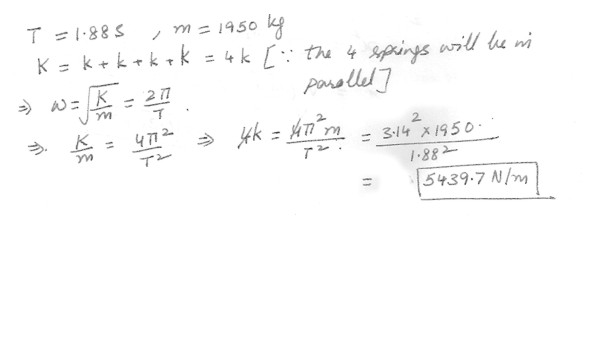 T = 1.88 s , m = 1950 kg
K = k + k + k + k = 4k [∵ the 4 springs will be in
parallel]
⇒ ω = √(K/m) = 2π/T .
⇒. K/m = 4π²/T² ⇒ 4k = 4π²m/T² . = 3.14² × 1950 . / 1.88²
= 5439.7 N/m